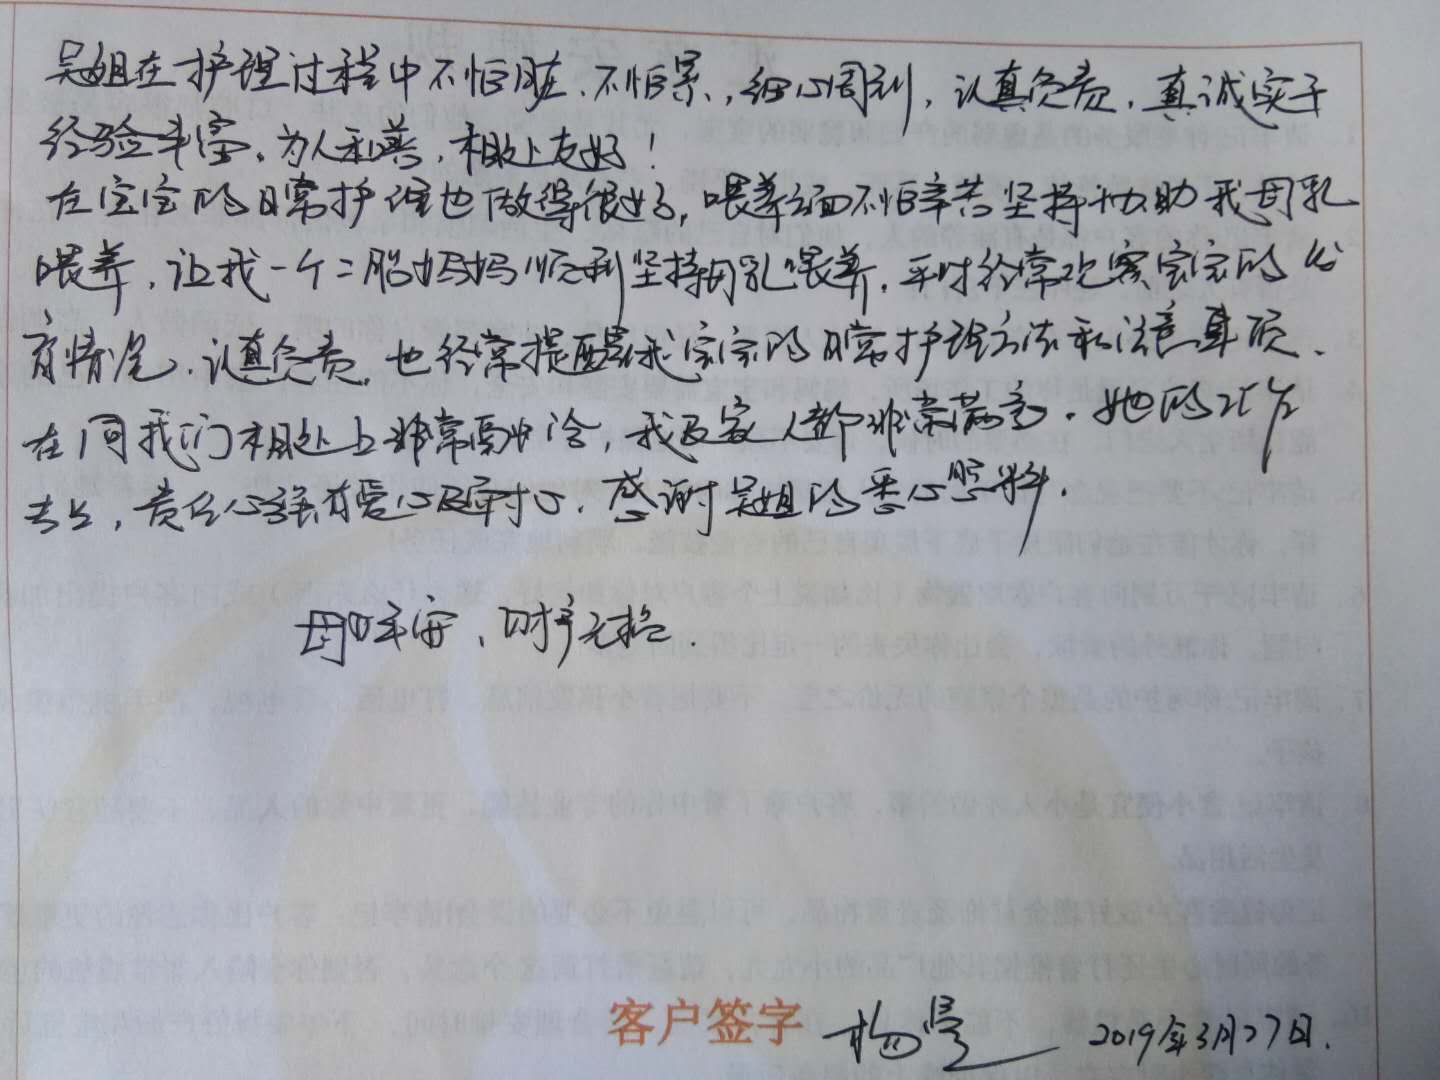 吴姐在护理过程中不怕脏、不怕累、细心周到，认真负责，真诚实干
经验丰富，为人和善，相处友好！
在宝宝的日常护理也做得很好，喂养方面不怕辛苦坚持协助我母乳
喂养，让我一个二胎妈妈顺利坚持母乳喂养，平时经常观察宝宝的发
育情况、认真负责，也经常提醒我宝宝的日常护理方法和注意事项、
在同我们相处上非常融洽，我及家人都非常满意．她的工作
责任心强有爱心及耐心．感谢吴姐的悉心照料．
母婴平安、呵护无忧
客户签字 杨
2019年3月27日．